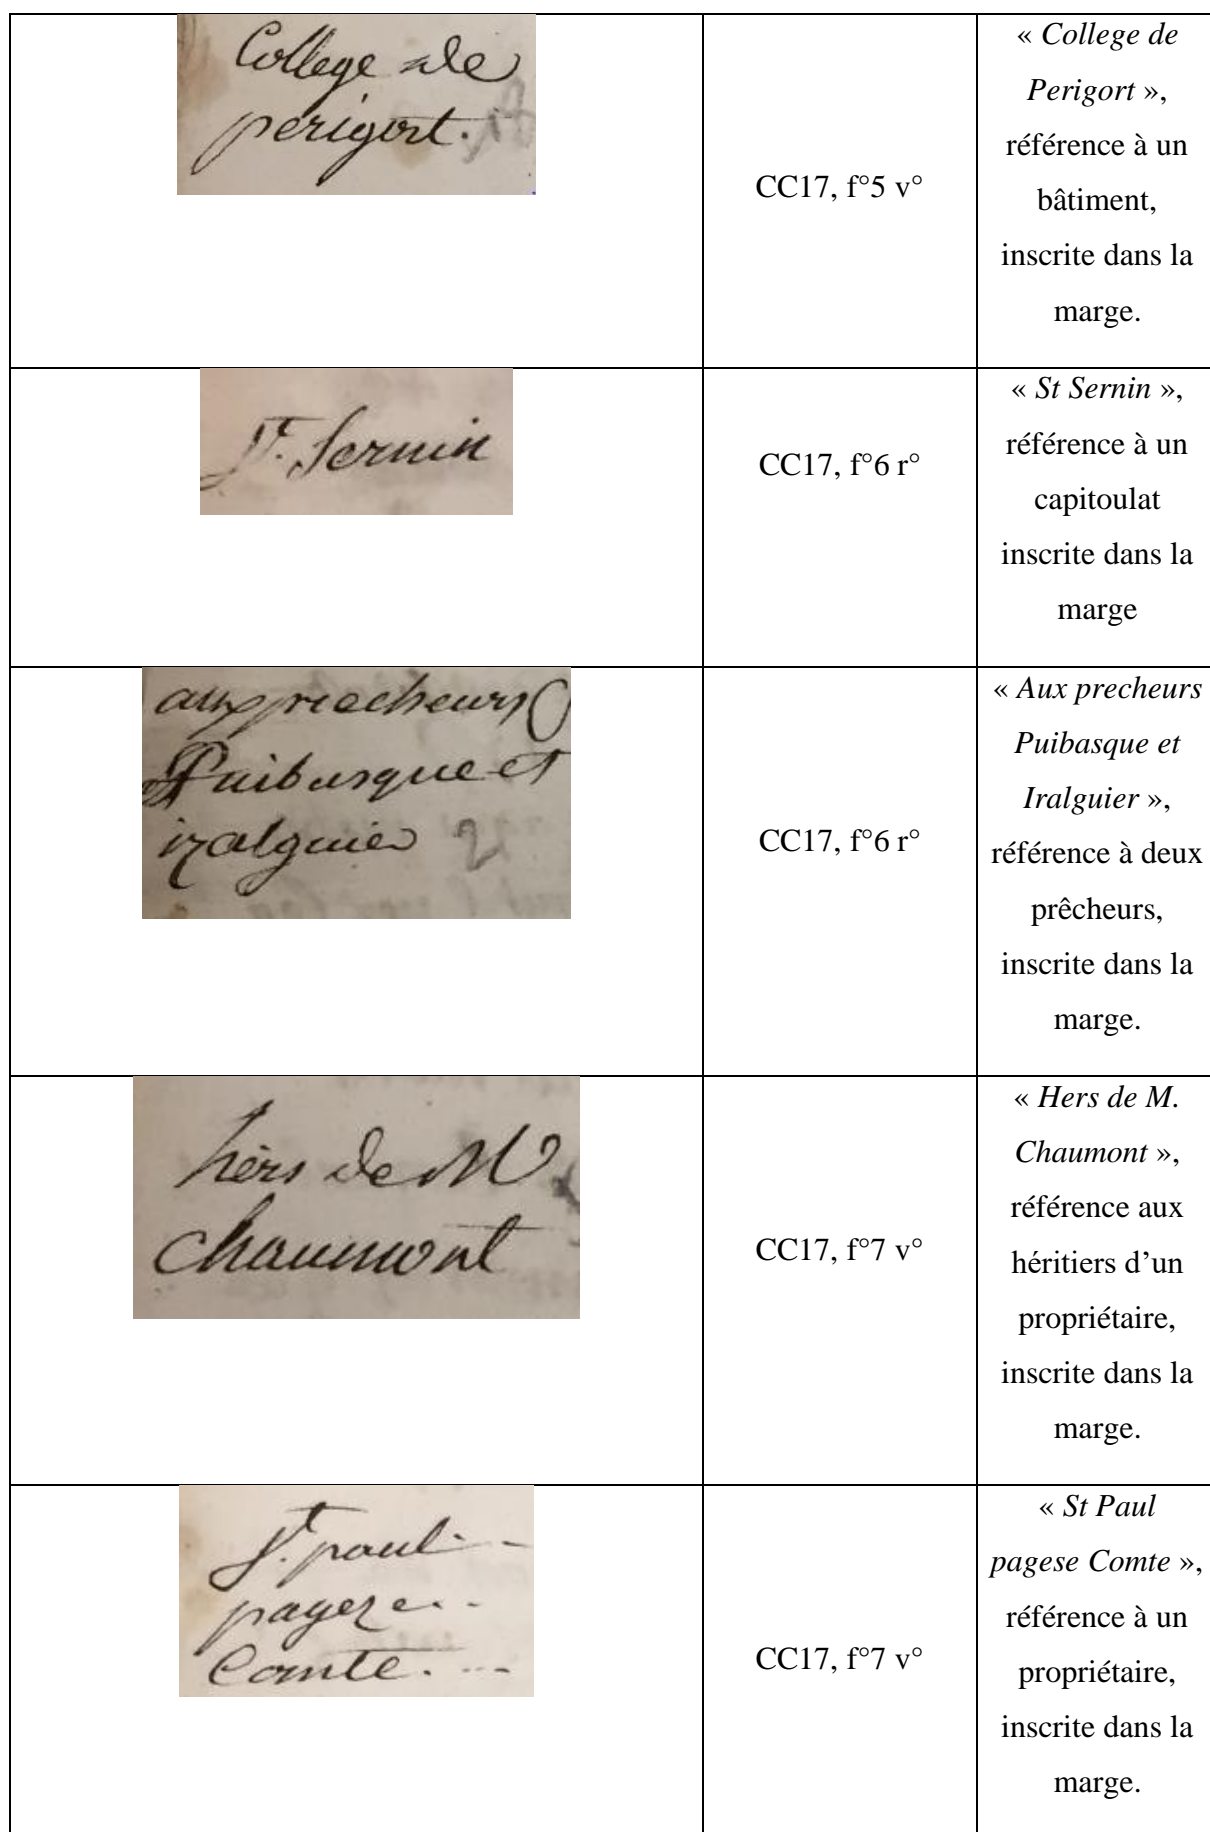 College de
perigort.
CC17, f°5 v°
« College de
Perigort »,
référence à un
bâtiment,
inscrite dans la
marge.
St. Sernin
CC17, f°6 r°
« St Sernin »,
référence à un
capitoulat
inscrite dans la
marge
aux precheurs
Puibusque et
iralguier
CC17, f°6 r°
« Aux precheurs
Puibasque et
Iralguier »,
référence à deux
prêcheurs,
inscrite dans la
marge.
hers de M
chaumont
CC17, f°7 v°
« Hers de M.
Chaumont »,
référence aux
héritiers d’un
propriétaire,
inscrite dans la
marge.
St. paul
pageze
Comte.
CC17, f°7 v°
« St Paul
pagese Comte »,
référence à un
propriétaire,
inscrite dans la
marge.